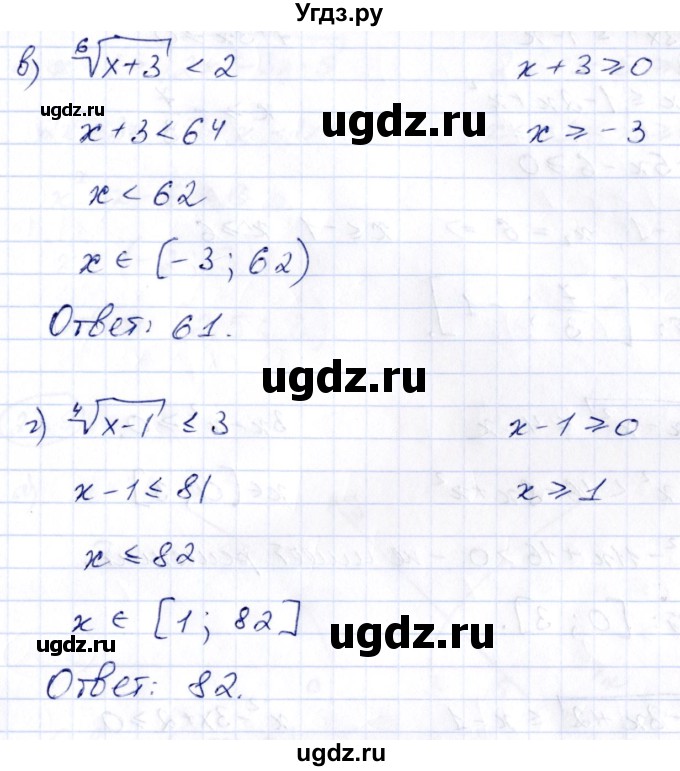 Угдз.ру
в) ⁶√x+3 < 2 x+3 ⩾ 0
ugdz.ru
ugdz.ru
x+3 < 64 x ⩾ -3
x < 62
x ∈ [-3; 62)
Ответ: 61.
ugdz.ru
г) ⁴√x-1 ≤ 3 x-1 ⩾ 0
x-1 ≤ 81 x ⩾ 1
x ≤ 82
x ∈ [1; 82]
ugdz.ru
ugdz.ru
Ответ: 82.
ugdz.ru